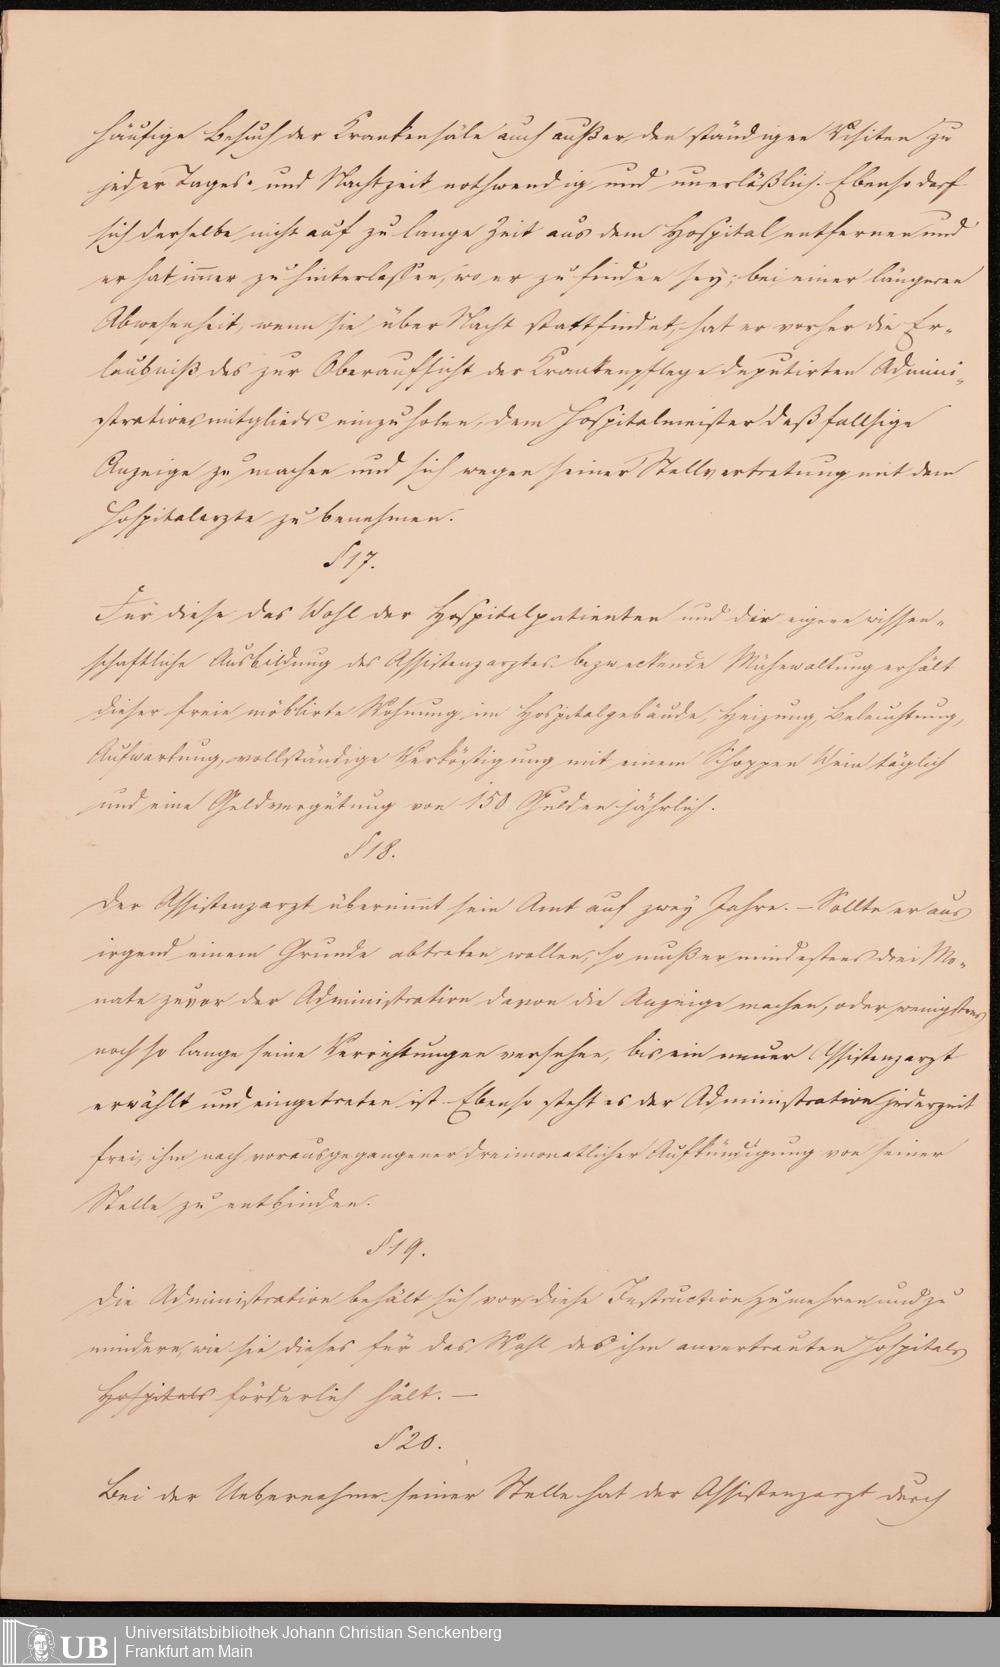 häufige Besuch der Krankensäle auch außer den ständigen Visiten zu
jeder Tages- und Nachtzeit nothwendig und unerläßlich. Ebenso darf
sich derselbe nicht auf zu lange Zeit aus dem Hospital entfernen und
er hat im̅er zu hinterlassen, wo er zu finden sey; bei einer längeren
Abwesenheit, wenn sie über Nacht stattfindet, hat er vorher die Er-
laubniß des zur Oberaufsicht der Krankenpflege deputirten Admini-
strationsmitglieds einzuholen, dem Hospitalmeister deßfallsige
Anzeige zu machen und sich wegen seiner Stellvertretung mit dem
Hospitalarzte zu benehmen.
§ 17.
Für diese das Wohl der Hospitalpatienten und die eigene wissen-
schaftliche Ausbildung des Assistenzarztes bezweckende Mühewaltung erhält
dieser freie möblirte Wohnung im Hospitalgebäude, Heizung, Beleuchtung,
Aufwartung, vollständige Verköstigung mit einem Schoppen Wein täglich
und eine Geldvergütung von 150 Gulden jährlich.
§ 18.
Der Assistenzarzt übernim̅t sein Amt auf zwey Jahre. – Sollte er aus
irgend einem Grunde abtreten wollen, so muß er mindestens drei Mo-
nate zuvor der Administration davon die Anzeige machen, oder wenigstens
noch so lange seine Verrichtungen versehen, bis ein neuer Assistenzarzt
erwählt und eingetreten ist. Ebenso steht es der Administration jederzeit
frei, ihn nach vorausgegangener dreimonatlicher Aufkündigung von seiner
Stelle zu entbinden.
§ 19.
Die Administration behält sich vor, diese Instruction zu mehren und zu
mindern, wie sie dieses für das Wohl des ihm anvertrauten Hospitals
Hospitals förderlich hält. –
§ 20.
Bei der Uebernahme seiner Stelle hat der Assistenzarzt durch
UB
Universitätsbibliothek Johann Christian Senckenberg
Frankfurt am Main